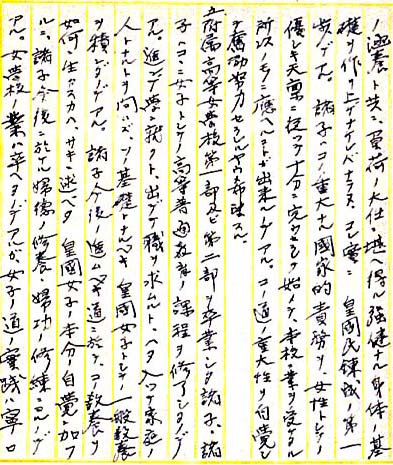 ノ涵養ト共ニ負荷ノ大任ニ堪ヘ得ル強健ナル身体ノ基
礎ヲ作リ上ゲナケレバナラヌ。コレ実ニ皇国民錬成ノ第一
歩デアル。諸子ハコノ重大ナル国家的責務ヲ、女性トシテノ
優レタ天稟ニ従ツテ十分ニ完ウセシメ始メテ本校ノ業ヲ受ケタル
所以ノモノニ応ヘルコトガ出来ルノデアル。コノ道ノ重大性ヲ自覚シ
奮励努力セラレンヤウ希望スル。
附属高等女学校第一部及ビ第二部ヲ卒業シタ諸子、諸
子ハココニ女子トシテノ高等普通教育ノ課程ヲ修了シタノデ
アル。進ンデ学ニ就クト、出デテ職ヲ求ムルト、ハタ入ツテ家庭ノ
人トナルトヲ問ハズ、ソノ基礎トナルベキ皇国女子トシテノ一般教養
ヲ積ンダノデアル。諸子ハ今後ノ進ムベキ道ニ於テ、コノ教養ヲ
如何ニ生カスカハ、サキニ述ベタ皇国女子ノ本分ノ自覚ニ加フ
ルニ、諸子今後ニ於ケル婦徳ノ修養、婦功ノ修練ニヨルノデ
アル。女学校ノ業ハ卒ヘタノデアルガ、女子ノ道ノ実践ハ寧ロ